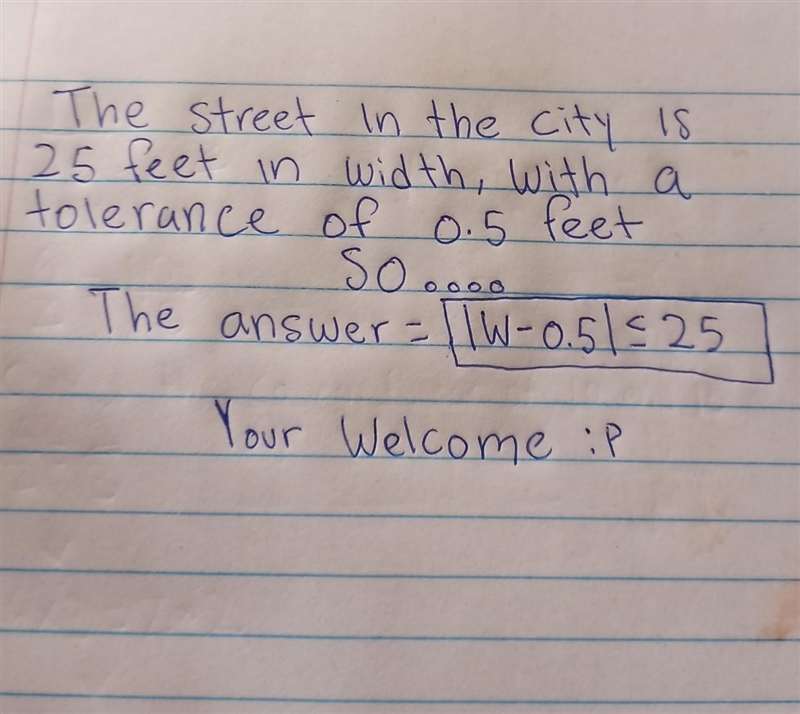 The street in the city is
25 feet in width, with a
tolerance of 0.5 feet
SO....
The answer = |W-0.5| ≤ 25
Your Welcome :P